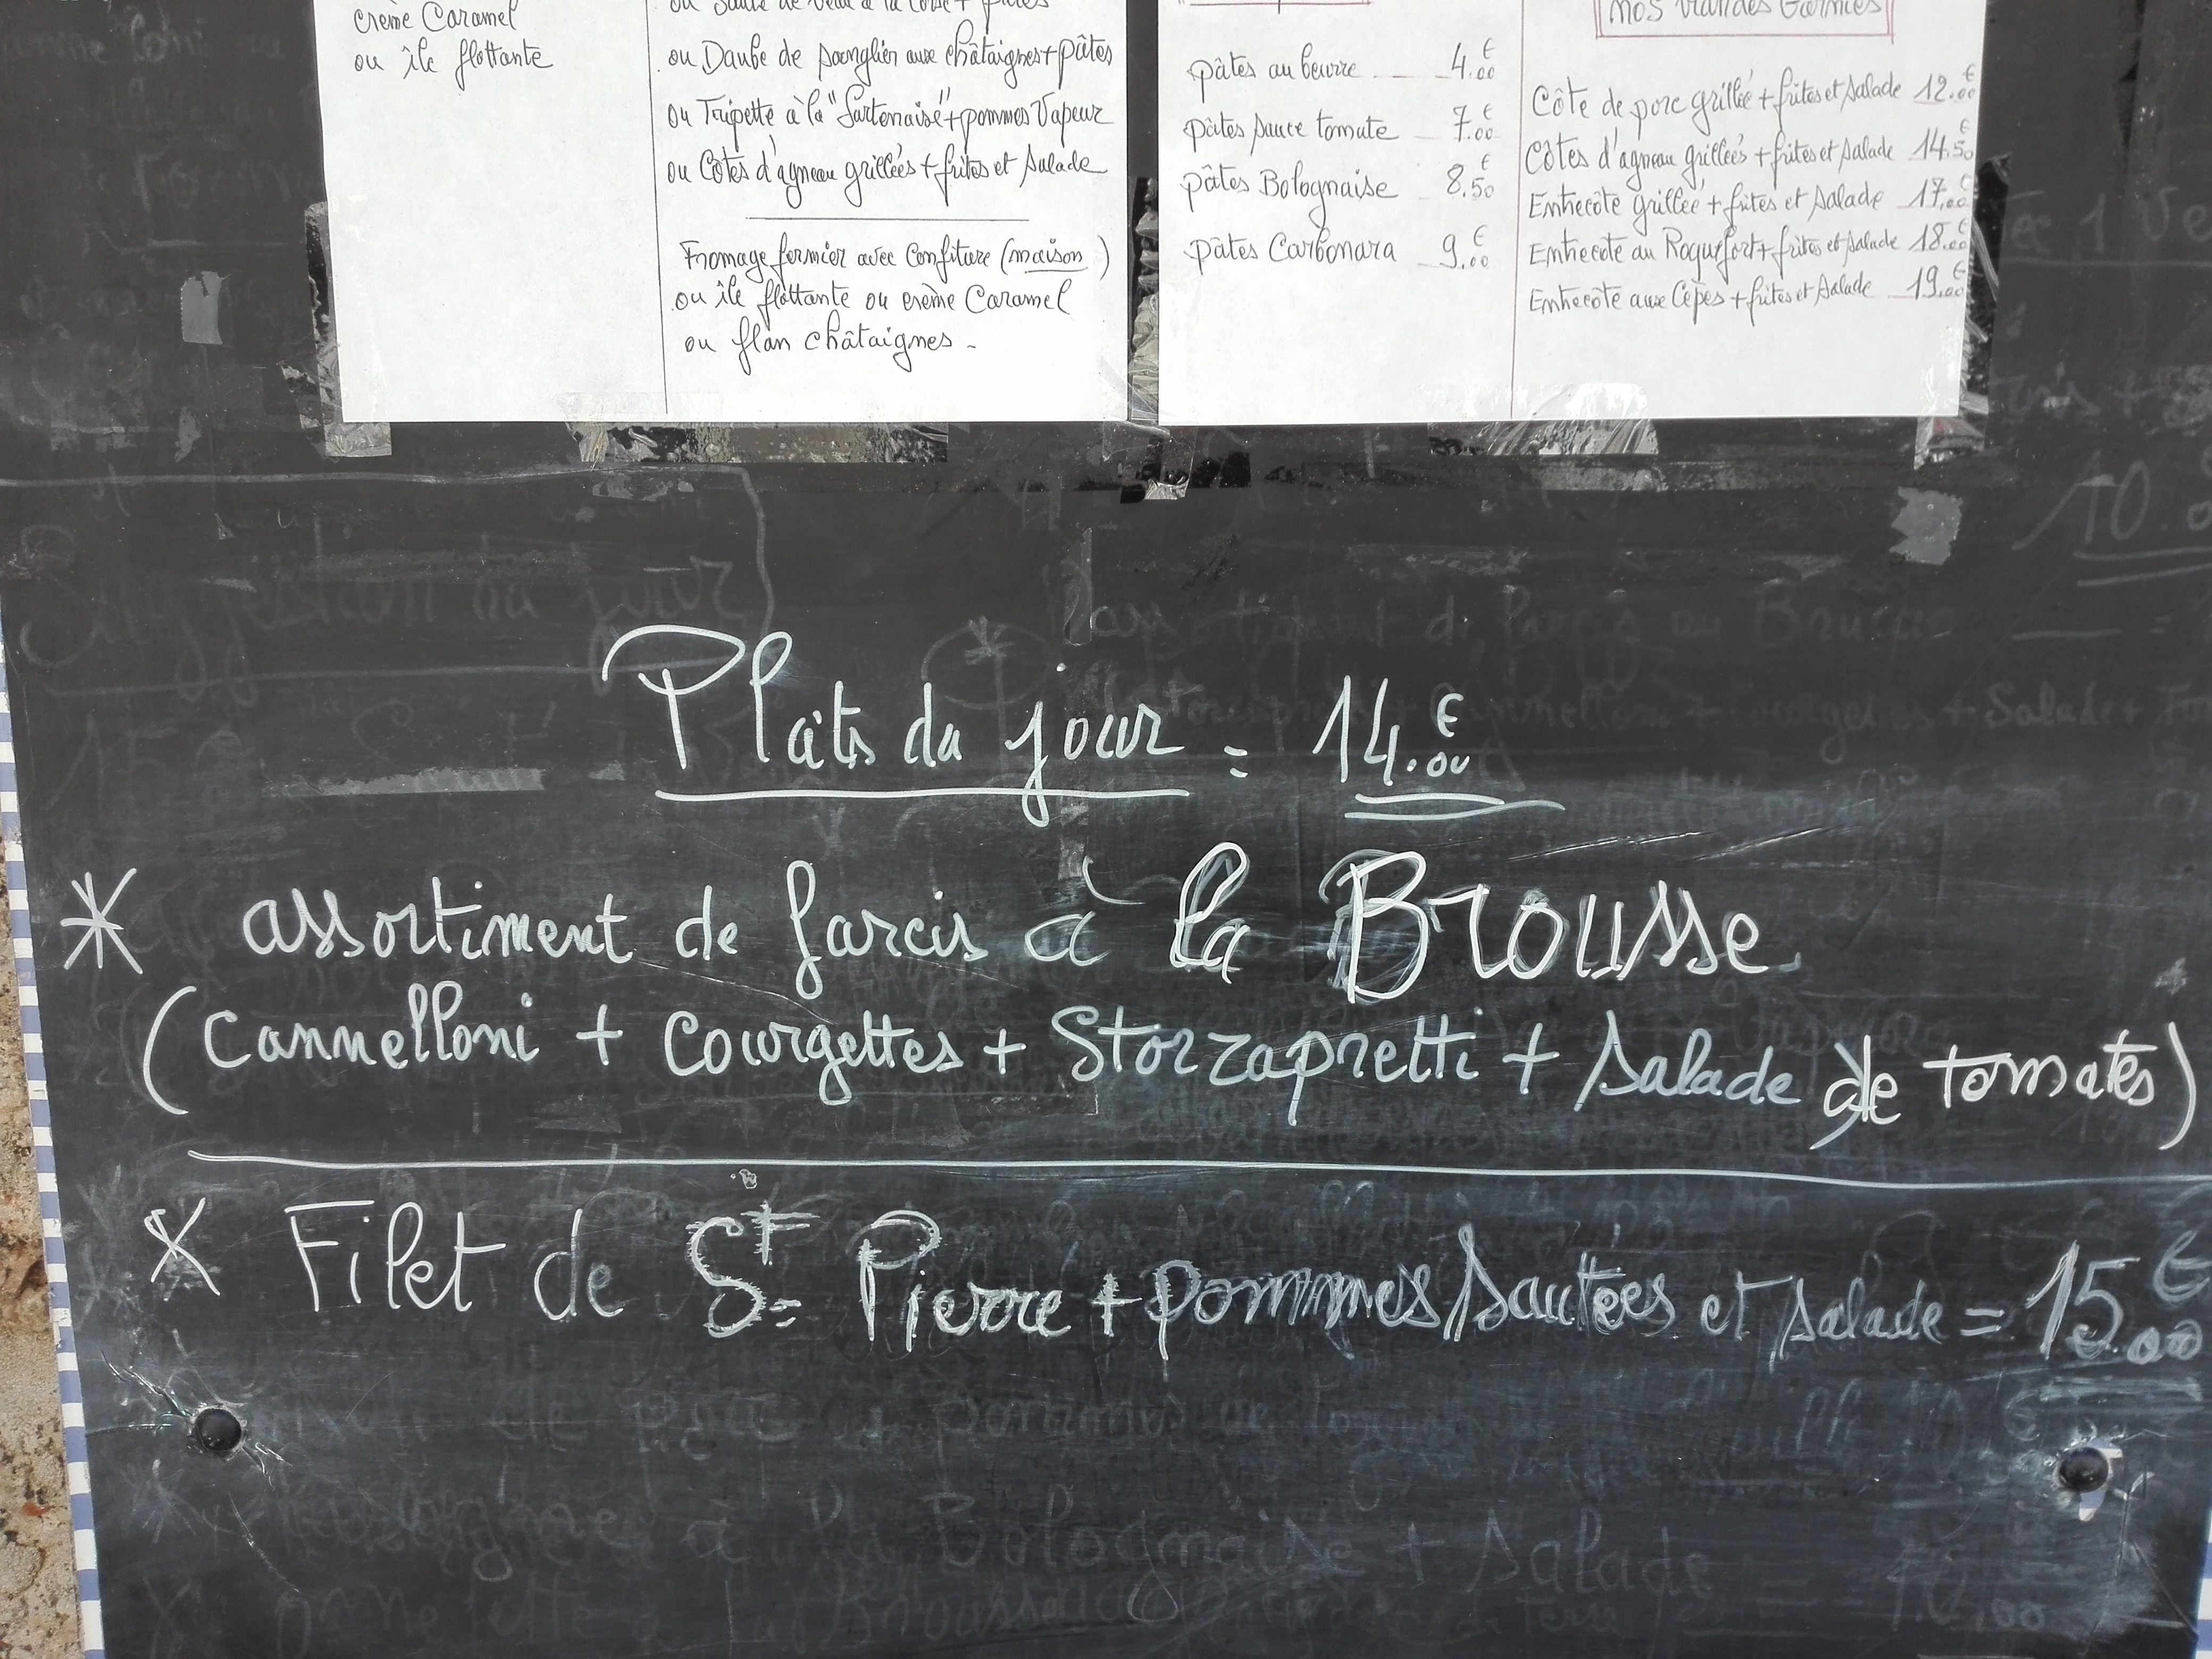 crème Caramel
ou île flottante
ou Sauté de Veau à la Corse + pâtes
ou Daube de sanglier aux châtaignes + pâtes
ou Tripette à la "Sartenaise" + pommes Vapeur
ou Côtes d'agneau grillées + frites et salade
Fromage fermier avec Confiture (maison)
ou île flottante ou crème Caramel
ou flan châtaignes -
pâtes au beurre 4.00 €
pâtes sauce tomate 7.00 €
pâtes Bolognaise 8.50 €
pâtes Carbonara 9.00 €
Nos Viandes Garnies
Côte de porc grillée + frites et salade 12.00 €
Côtes d'agneau grillées + frites et salade 14.50 €
Entrecôte grillée + frites et salade 17.00 €
Entrecote au Roquefort + frites et salade 18.00 €
Entrecôte aux Cèpes + frites et salade 19.00 €
Suggestion du jour
Plats du jour = 14.00 €
* assortiment de farcis à la Brousse
(Cannelloni + Courgettes + Storzapretti + salade de tomates)
* Filet de St Pierre + pommes sautées et salade = 15.00 €
à la Bolognaise + salade